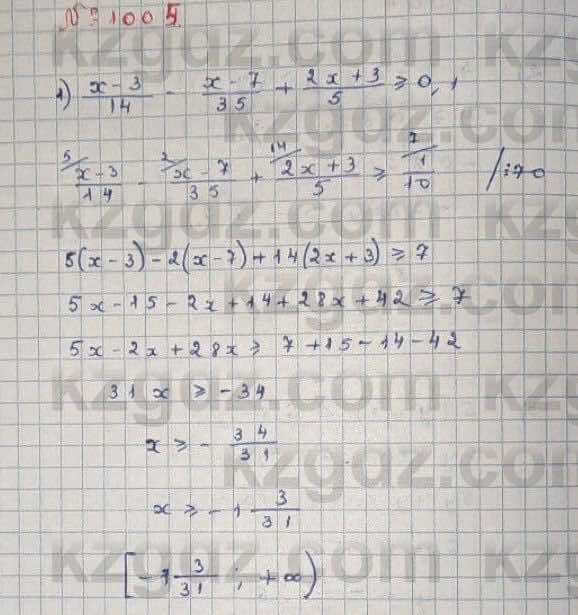 № 1005
1) (x-3)/14 - (x-7)/35 + (2x+3)/5 ≥ 0,1
5/ (x-3)/14 - 2/ (x-7)/35 + 14/ (2x+3)/5 ≥ 7/ 1/10 /:70
5(x-3)-2(x-7)+14(2x+3) ≥ 7
5x-15-2x+14+28x+42 ≥ 7
5x-2x+28x ≥ 7+15-14-42
31x ≥ -34
x ≥ - 34/31
x ≥ -1 3/31
[-1 3/31 ; +∞)
kzgdz.com